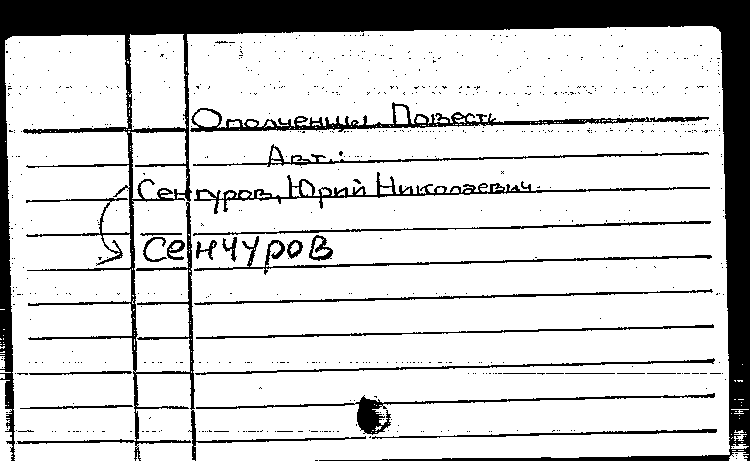 Ополченцы. Повесть
Авт.:
Сенгуров, Юрий Николаевич.
Сенчуров